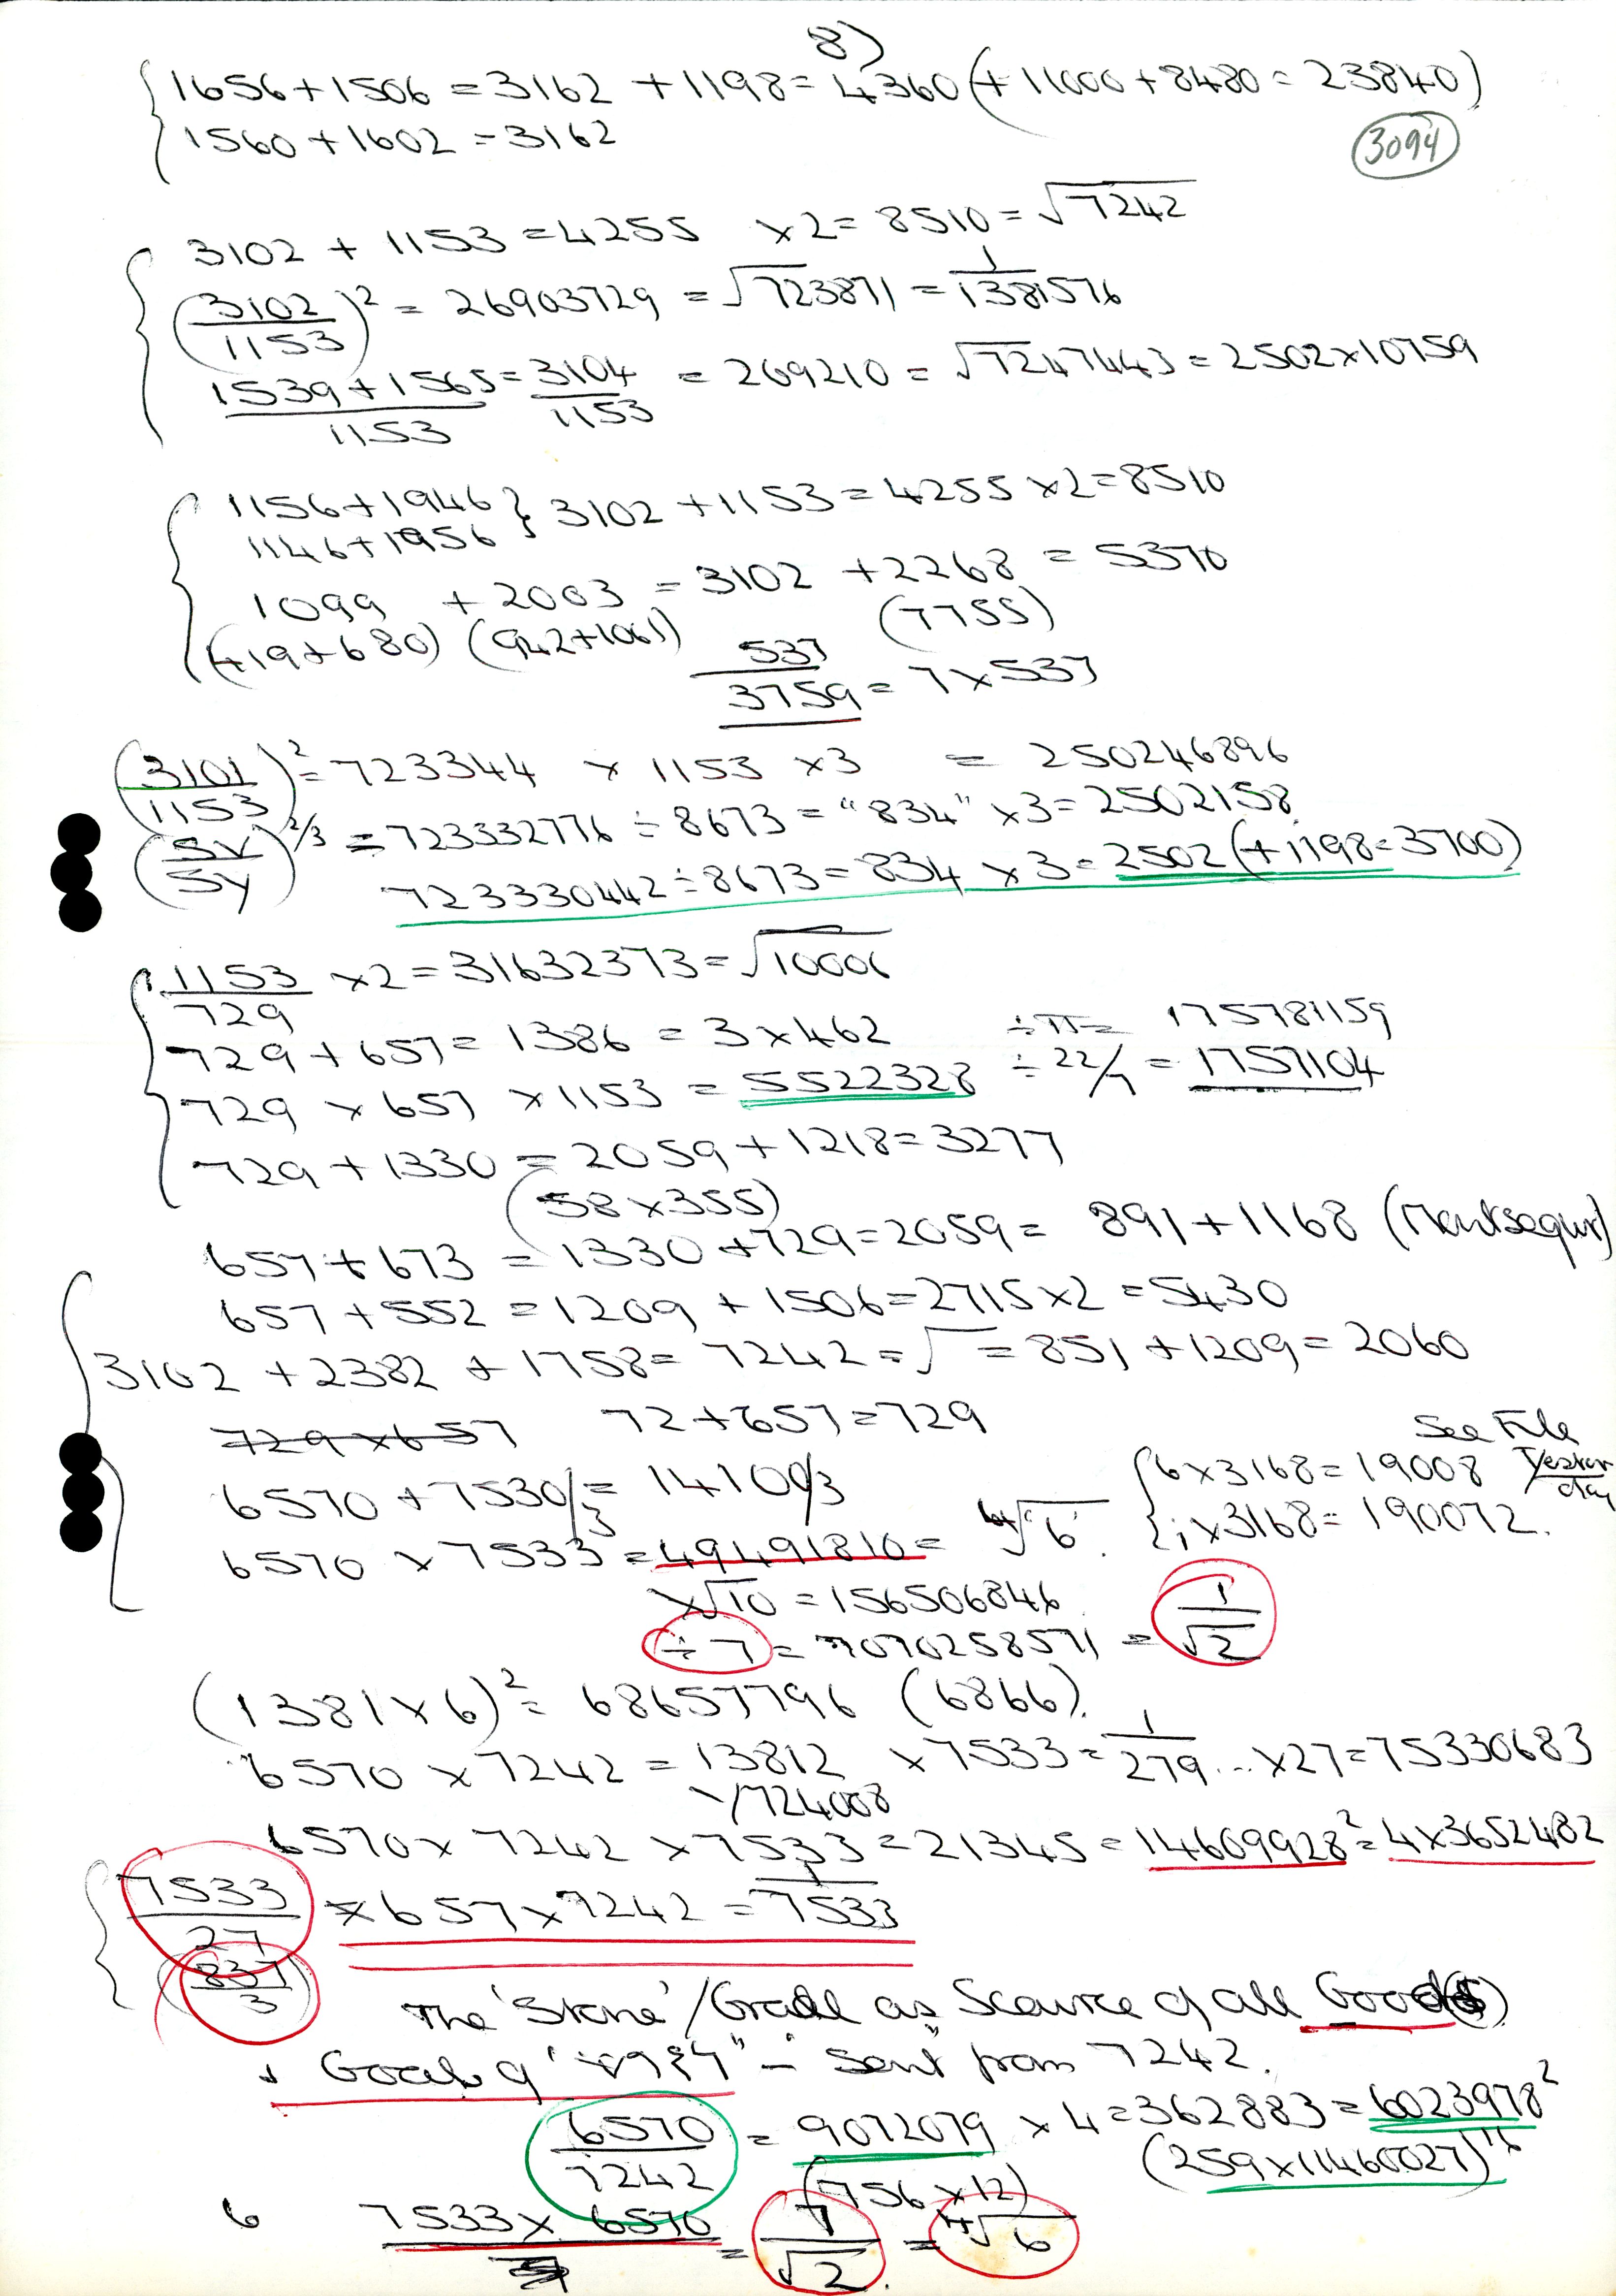 8)
1656+1506 = 3162 +1198= 4360 (+11000+8480=23840)
1560+1602 =3162
3094
3102 + 1153 =4255 ×2= 8510= √7242
(3102/1153)² = 26903729 = √723871 = 1/1381576
1539+1565/1153 = 3104/1153 = 269210 = √7247443 = 2502×10759
1156+1946 } 3102 +1153=4255 ×2=8510
1146+1956
1099 +2003 = 3102 +2268 = 5370
(419+680) (942+1061) (7755)
537/3759 = 7×537
(3101/1153)² = 723344 × 1153 ×3 = 250246896
(SV/SY)^2/3 = 723332776 ÷ 8673 = "834" ×3= 2502158
723330442 ÷8673= 834 ×3= 2502 (+1198=3700)
1153/729 ×2= 31632373= √10006
729 +657= 1386 = 3×462 ÷π= 175781159
729 × 657 ×1153 = 5522328 ÷22/7 = 1757104
729 +1330 = 2059 +1218= 3277
(58×355)
657+673 = 1330 +729=2059= 891+1168 (Montsegur)
657+552 = 1209 +1506=2715×2 =5430
3102 +2382 + 1758= 7242 = √ = 851 +1209= 2060
729×657 72+657=729
See File Yesterday
6570 +7530/3 = 14100/3 6×3168=19008
6570 ×7533 =49491810= √6. ×3168= 190072.
×√10 =156506846
÷7= 7070258571 = 1/√2
(1381×6)² = 68657796 (6866).
6570 ×7242 = 13812 ×7533= 1/279... ×27=75330683
√724008
6570× 7242 ×7533 =21345= 14609928² = 4×3652482
7533/27 ×657×7242 = 1/7533
(837/3)
The 'Stone'/Grail as Source of all Good(s)
sent from 7242.
6570/7242 = 9072079 × 4=362883= 6023978²
(756×12) (259×11460027)¹⁶
6 7533× 6570 = 7/√2 = √6